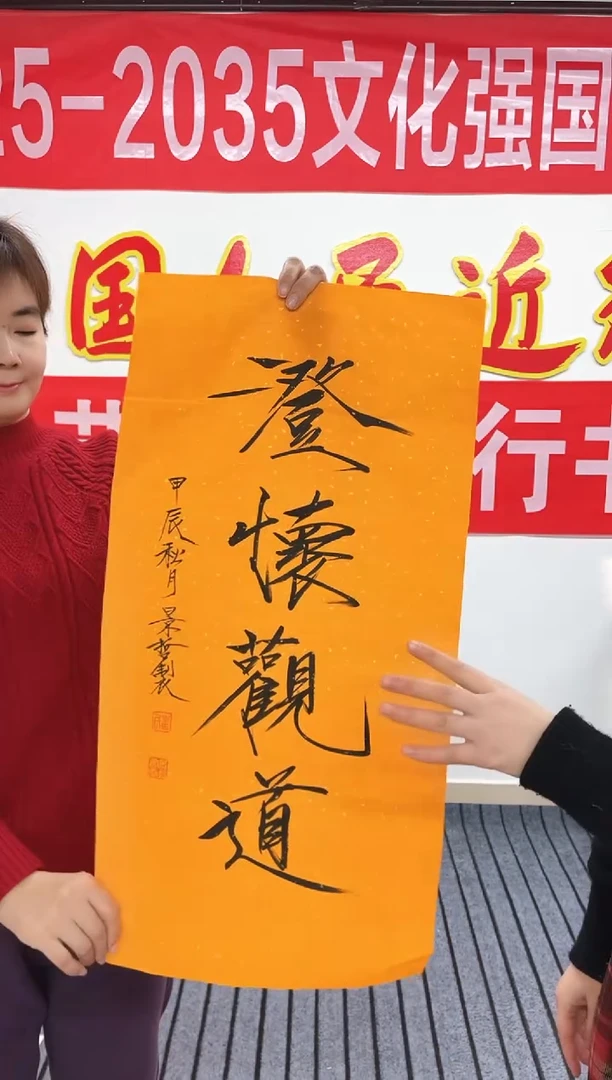 25-2035文化强国
国
近
行书
澄懷觀道
甲辰秋月 景哲製